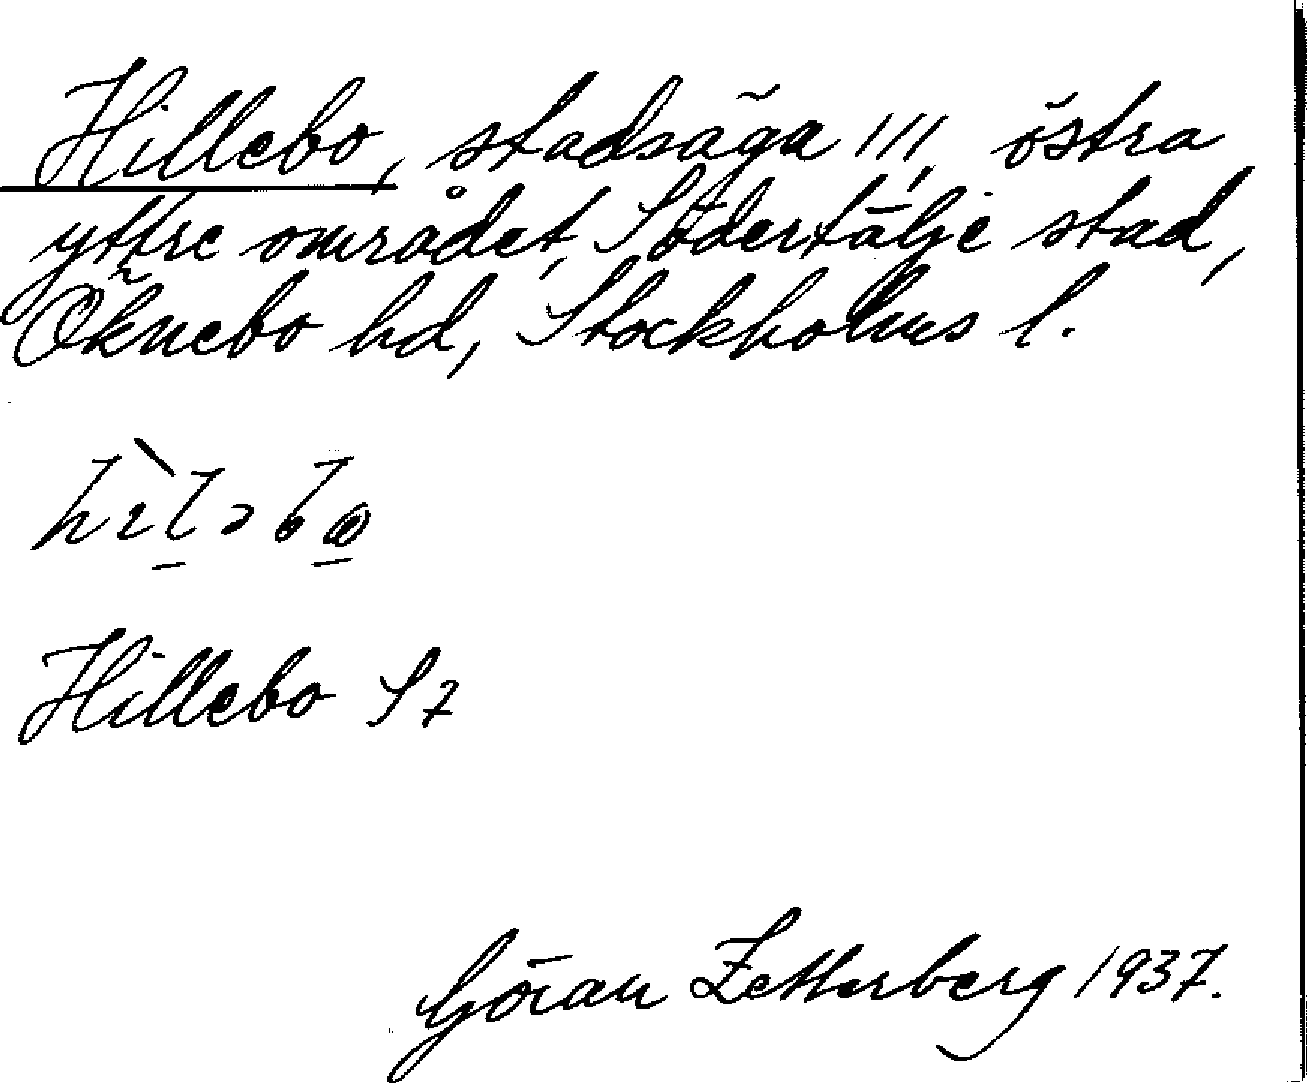 Hillebo, stadsäga 111, östra
yttre området, Södertälje stad,
Öknebo hd, Stockholms l.
hɪ̀l̠əbω̠
Hillebo Sz
Göran Zetterberg 1937.